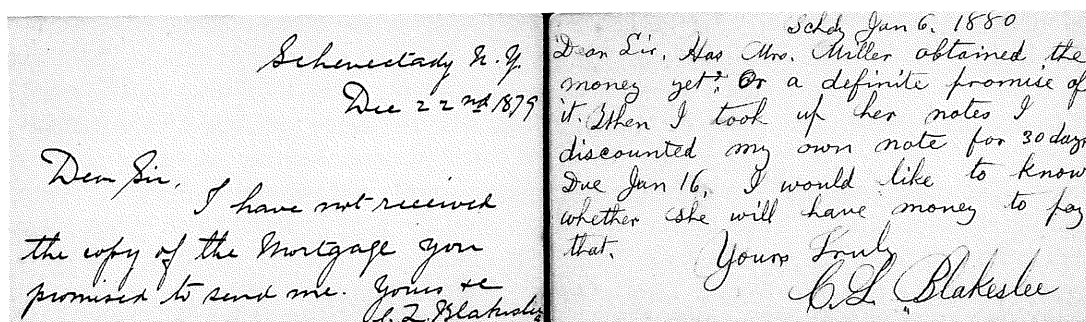 Schenectady N. Y.
Dec 22nd 1879
Dear Sir,
I have not recieved
the copy of the Mortgage you
promised to send me. Yours &c
C. L. Blakeslee
Schdy Jan 6. 1880
Dear Sir, Has Mrs. Miller obtained the
money yet? Or a definite promise of
it. When I took up her notes I
discounted my own note for 30 days
Due Jan 16, I would like to know
whether she will have money to pay
that.
Yours Truly
C. L. Blakeslee